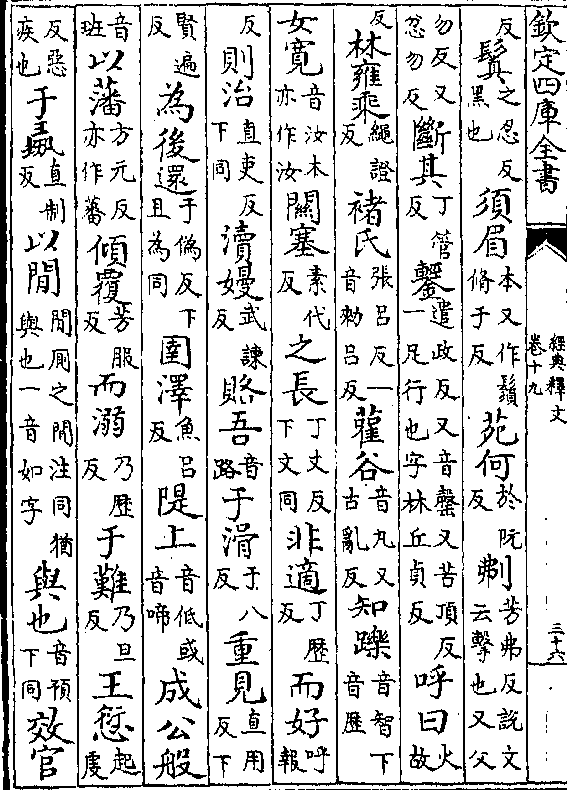 欽定四庫全書
經典釋文
卷十九
三十六
反鬒之忍反黑也須眉本又作鬚脩于反苑何於阮反刜芳弗反說文云擊也又父
勿反又忽勿反斷其丁管反鑋遣政反又音罄又苦頂反一足行也字林丘貞反呼曰火故
反林雍乘繩證反褚氏張呂反一音勑呂反雚谷音丸又古亂反知躒音智下音歷
女寛音汝本亦作汝關塞素代反之長丁丈反下文同非適丁歷反而好呼報
反則治直吏反下同瀆嫚武諫反賂吾音路于滑于八反重見直用反下
賢遍反為後還于偽反下且為同圉澤魚呂反隄上音低或音啼成公般
音班以藩方元反亦作蕃傾覆芳服反而溺乃歷反于難乃旦反王愆起虔
反惡疾也于彘直制反以閒閒厠之閒注同猶與也一音如字與也音預下同效官